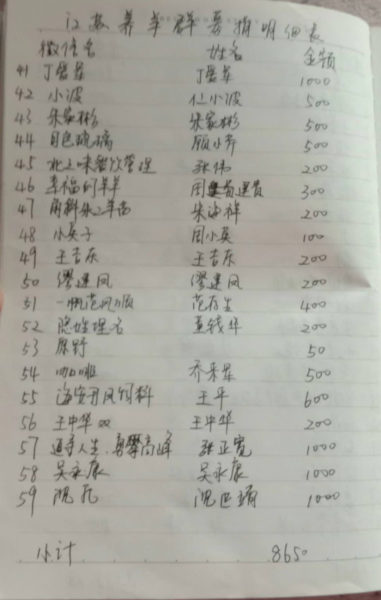 江苏养羊群募捐明细表
微信名 姓名 金额
41 丁 丁 1000
42 小波 仁小波 500
43 朱家彬 朱家彬 500
44 月色琉璃 顾小芹 500
45 北上味餐饮管理 张伟 200
46 幸福的羊羊 周贵 300
47 朱二羊苗 朱海祥 200
48 小英子 周小英 100
49 王吉东 王吉东 200
50 缪建凤 缪建凤 200
51 一帆范风顺 范存生 400
52 隐姓埋名 钱华 200
53 原野 50
54 咖啡 乔 500
55 海安开风饲料 王平 600
56 王中华 王中华 200
57 人生.勇攀高峰 张正宽 1000
58 吴永康 吴永康 1000
59 1000
小计 8650